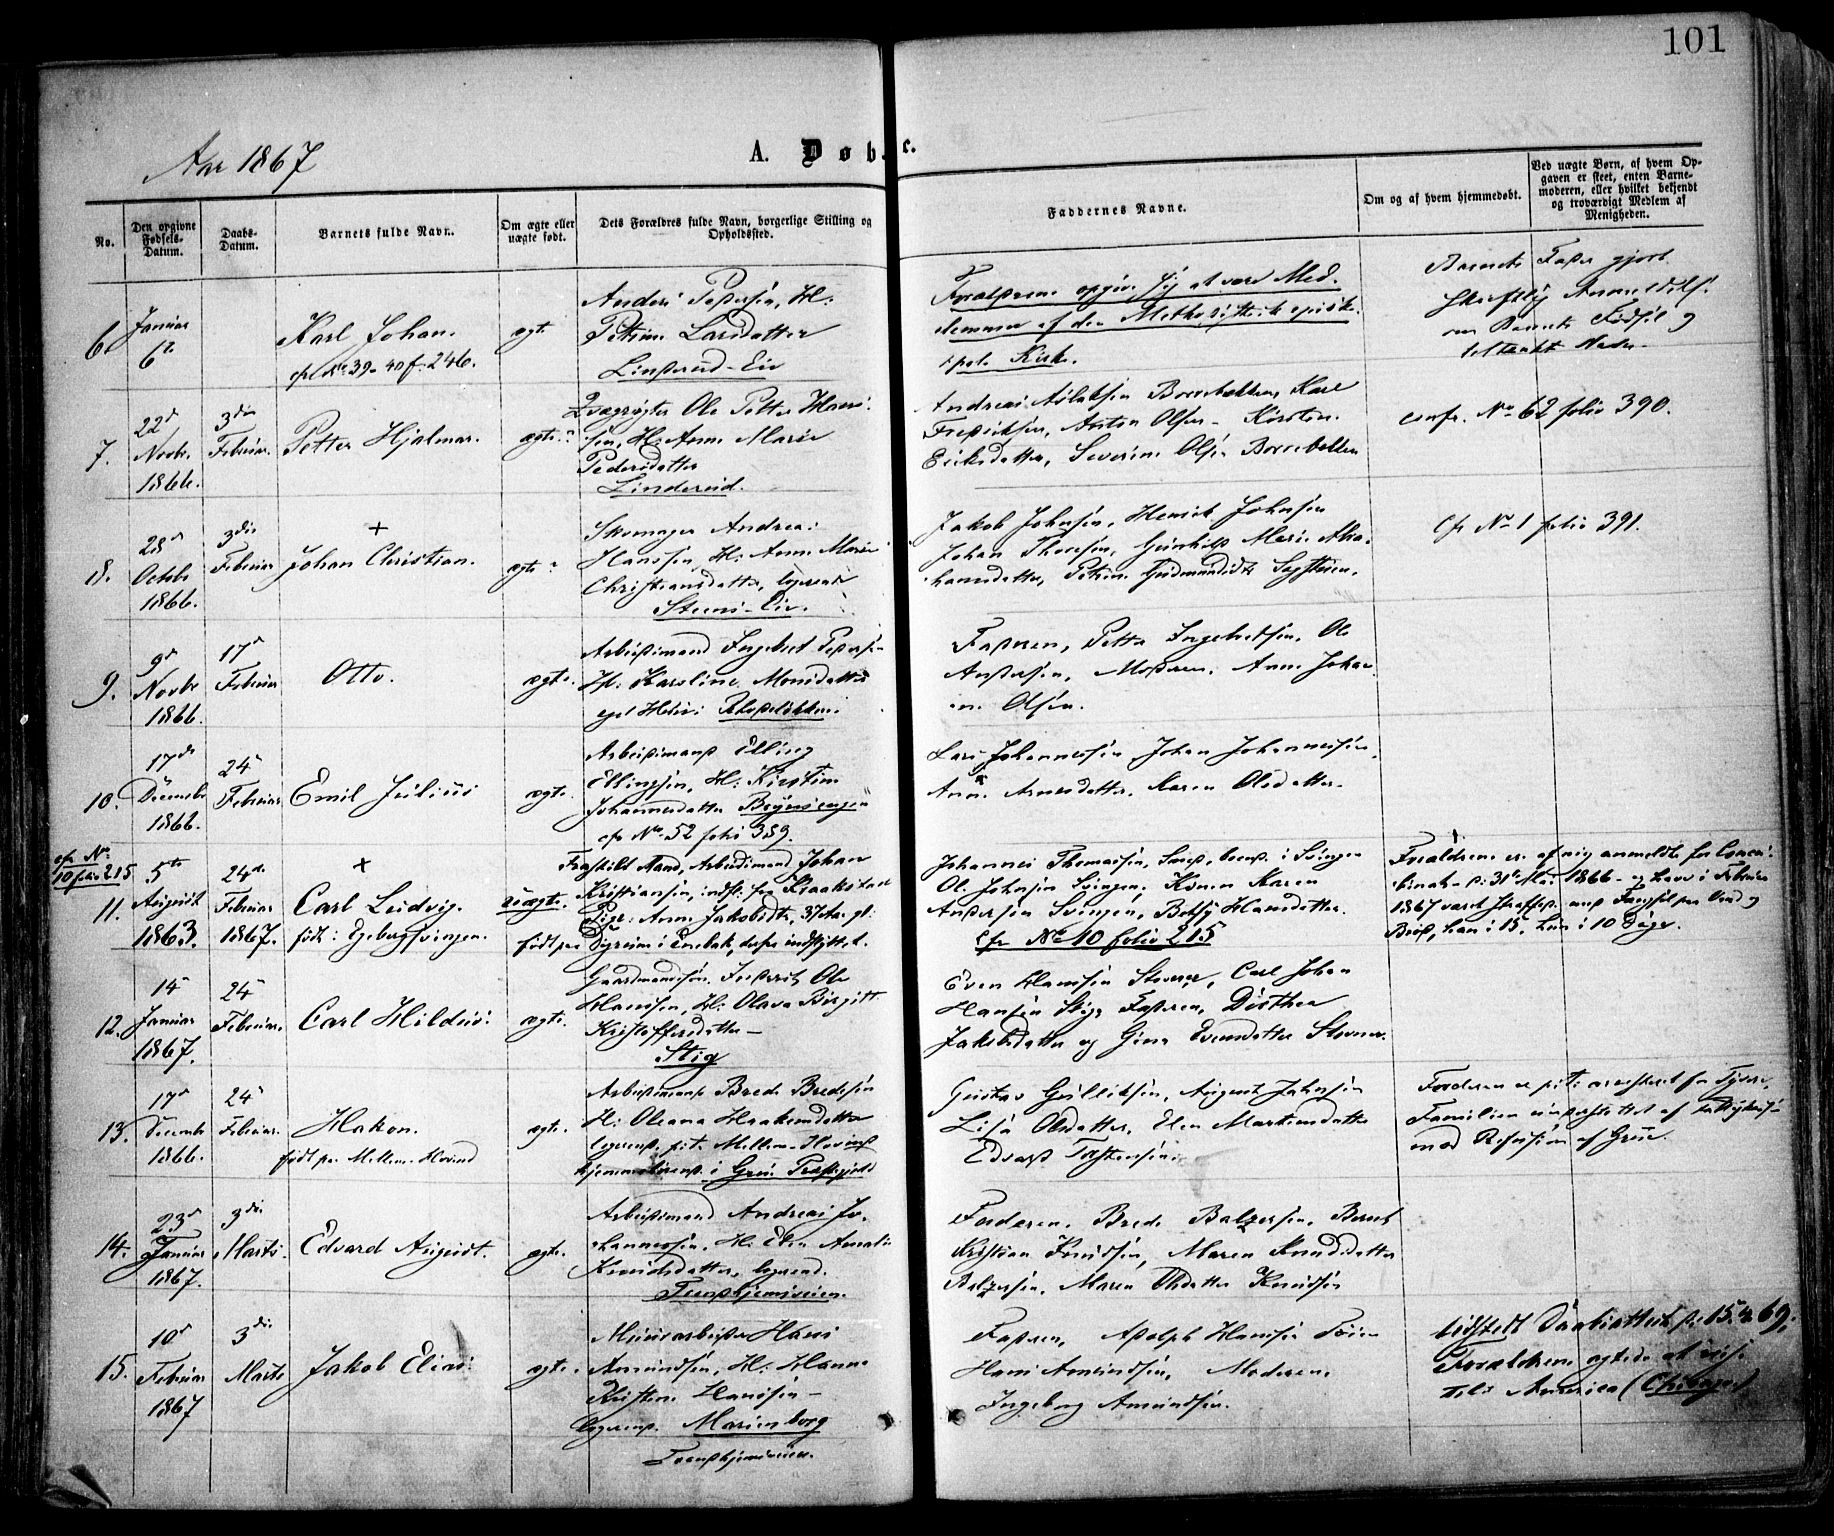 101
Aar 1867
A. Døbte.
No.
Den opgivne Fødsels-Datum.
Daabs-Datum.
Barnets fulde Navn.
Om ægte eller uægte født.
Dets Forældres fulde Navn, borgerlige Stilling og Opholdssted.
Faddernes Navne.
Om og af hvem hjemmedøbt.
Ved uægte Børn, af hvem Opgaven er skeet, enten Barnemoderen, eller hvilket bekjendt og troværdigt Medlem af Menigheden.
6.
Januar
6te
Karl Johan.
cfr No 39-40 f. 246.
ægte
Anders Pedersen, H:
Petrine Larsdatter
Linderud-Eie
Forældrene opgive sig at være Med-
lemmer af den Methodistiske episko-
pale Kirke.
Barnets Fader gjort
skriftlig Anmeldelse
om Barnets Fødsel og
tiltænkt Navn.
7.
22de
Novbr.
1866.
3die
Februar.
Petter Hjalmar.
ægte.
Ole Petter Han-
sen, H: Anne Marie
Pedersdatter
Linderud.
Andreas
Frederiksen, Anton Olsen, Kirsten
Eriksdatter, Severine Olsen
confr. No 62 folio 390.
8.
28de
Octobr
1866.
3die
Februar
+
Johan Christian.
ægte
Skomager Andreas
Hanssen, H: Anne Marie
Christiansdatter, logerende
Steens-Eie.
Jakob Johnsen, Henrik Johnsen
Johan Thoresen, Gunhild Marie Abra-
hamsdatter, Petrine
cfr No 1 folio 391.
9.
9de
Novbr
1866.
17de
Februar
Otto.
ægte.
Arbeidsmand Ingebret Peders-
H: Karoline Monsdatter
Faderen, Petter Ingebretsen, Ole
Andersen, Moderen, Anne Johan-
ne Olsen.
10.
17de
Decembr
1866.
24de
Februar
Emil Julius
ægte.
Arbeidsmand Elling
Ellingsen, H: Kirstine
Johannesdatter Brynsengen
cfr No 52 folio 389.
Lars Johannessen, Johan Johannessen,
Anne Arnesdatter, Karen Olsdatter.
cfr No
10 folio 215
11.
5te
August
1863.
24de
Februar
1867.
+
Carl Ludvig.
født i Egebergsvingen.
uægte.
født paa
Fraskildt Mand, Arbeidsmand Johan
Kristiansen, indfl. fra Kraakstad
Pige: Anne Jakobsdtr, 37 Aar gl:
i Enebak, derfra indflyttet.
Johannes Thomassen,
Ole Johnsen Svingen, Konen Karen
Andersen Svingen, Betsy Hansdatter.
Cfr No 10 folio 215
Forældrene er af mig anmeldte for Concu-
binat 31te Mai 1866 og bleve i Februar
1867 straffede med Fængsel paa Vand og
Brød, han i 15, hun i 10 Dage.
12.
14de
Januar
1867.
24de
Februar.
Carl Hildus
ægte.
Gaardmandssøn Frederik Ole
Hanssen, H: Olava Birgitte
Kristoffersdatter
Stig
Even Hanssen Stovner, Carl Johan
Hansen Stig, Faderen, Dorthea
Jakobsdatter og Gina Evensdatter Stovner.
13.
17de
Decembr
1866.
24de
Februar.
Hakon.
født paa Mellem-Hovind
ægte.
Arbeidsmand Brede Bredesen
H: Oleana Haakensdatter
logerende p. t. Mellem-Hovind
hjemmehørende i Grue Præstegjeld
Gustav Gulliksen, August Johnsen
Lisa Olsdatter, Elen Martinsdatter
Edvard Torstensen.
Faderen er p. t. arresteret for Tyveri,
Familien understøttet af Fattigkassen
med Refusion af Grue.
14.
23de
Januar
1867.
3die
Marts.
Edvard August.
ægte.
Arbeidsmand Andreas Jo-
hannessen, H: Elen Amalie
Knudsdatter, logerende
Trondhjemsveien.
Faderen, Brede Balzersen, Bernt
Kristian Knudsen, Maren Knudsdatter
Balzersen, Maren Olsdatter Knudsen
15.
10de
Februar
1867
3die
Marts
Jakob Elias
ægte.
Murarbeider Hans
Amundsen, H: Hanna
Kristine Hansen
logerende Marienborg
Trondhjemsveien.
Faderen, Adolph Hansen
Hans Amundsen, Moderen,
Ingeborg Amundsen.
Udstedt Daabsattest 15 4 69;
Forældrene agtede at reise
til America (Chicago)